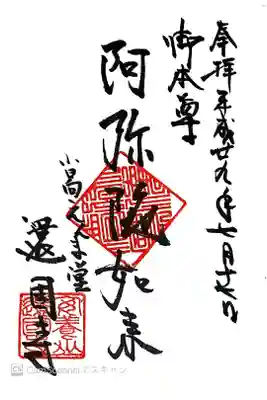 奉拝 平成廿九年七月十七日
御本尊
阿弥陀如来
小高えんま堂
還国寺
CamScannerでスキャン